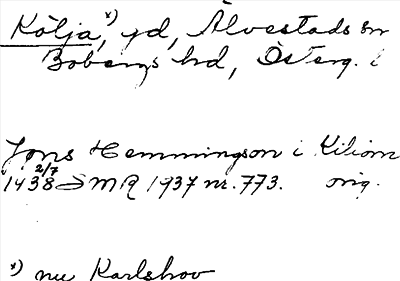 Kölja,*) gd, Älvestads sn
Bobergs hd, Österg. l
Jöns Hemmingson i Kiliom
1438 2/7 SMR 1937 nr. 773. orig.
*) nu Karlshov